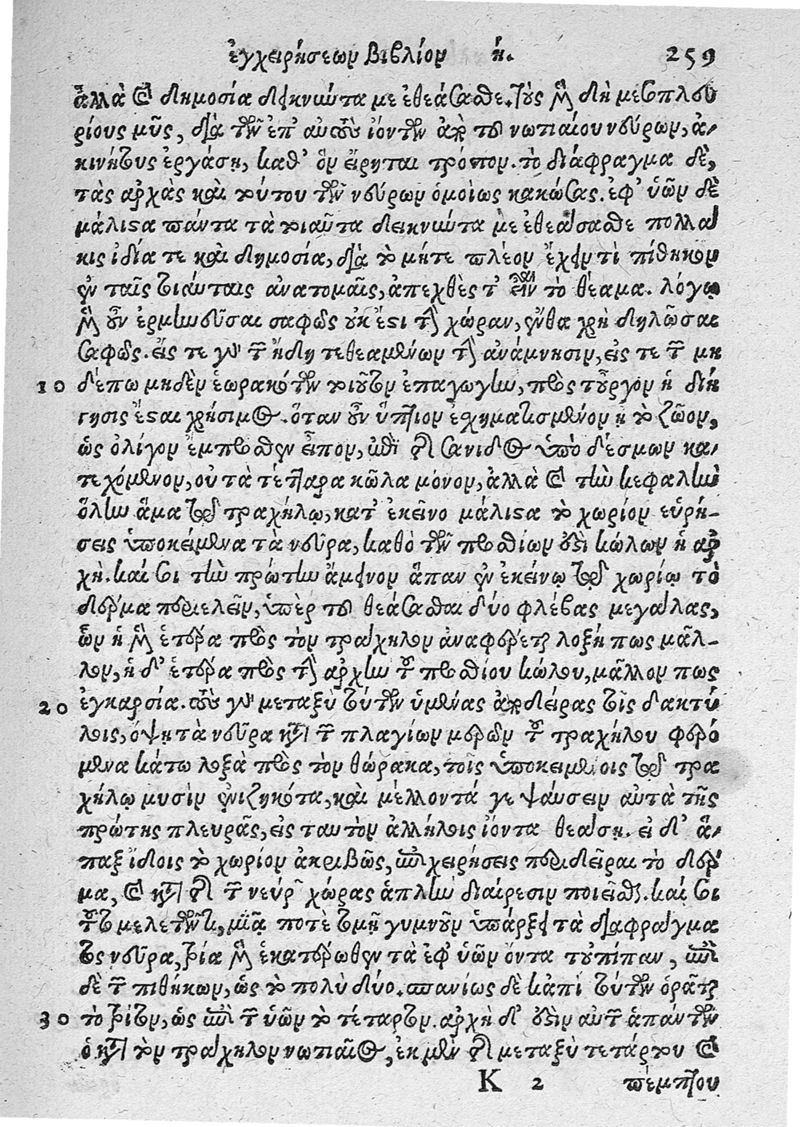 ἐγχειρήσεων Βιβλίον η. 259
ἀλλὰ καὶ δημοσίᾳ δεικνύντα με ἐθεάσασθε. τοὺς μὲν δὴ μεσοπλευ
ρίους μῦς, διὰ τῶν ἐπ' αὐτοὺς ἰόντων ἀπὸ τοῦ νωτιαίου νεύρων, ἀ-
κινήτους ἐργάσῃ, καθ' ὃν εἴρηται τρόπον. τὸ διάφραγμα δὲ,
τὰς ἀρχὰς καὶ τούτου τῶν νεύρων ὁμοίως κακώσας. ἐφ' ὑῶν δὲ
μάλιστα πάντα τὰ τοιαῦτα δεικνύντα με ἐθεάσασθε πολλά
κις ἰδίᾳ τε καὶ δημοσίᾳ, διὰ τὸ μήτε πλέον ἔχειν τὶ πίθηκον
ἐν ταῖς τοιαύταις ἀνατομαῖς, ἀπεχθές τ' εἶναι τὸ θέαμα. λόγῳ
μὲν οὖν ἑρμηνεῦσαι σαφῶς οὐκ ἔστι τὴν χώραν, ἔνθα χρὴ δηλῶσαι
σαφῶς. εἴς τε γὰρ τῶν ἤδη τεθεαμένων τὴν ἀνάμνησιν, εἴς τε τῶν μη
10 δέπω μηδὲν ἑωρακότων τοιοῦτον ἐπαγωγὴν, πρὸς τοὖργον ἡ διή
γησις ἔσται χρήσιμος. ὅταν οὖν ὕπτιον ἐσχηματισμένον ᾖ τὸ ζῶον,
ὡς ὀλίγον ἔμπροσθεν εἶπον, ἐπὶ τῆς σανίδος ὑπὸ δέσμων κα-
τεχόμενον, οὐ τὰ τέτταρα κῶλα μόνον, ἀλλὰ καὶ τὴν κεφαλὴν
ὅλην ἅμα τῷ τραχήλῳ, κατ' ἐκεῖνο μάλιστα τὸ χωρίον εὑρή-
σεις ὑποκείμενα τὰ νεῦρα, καθὸ τῶν προσθίων ἐστὶ κώλων ἡ ἀρ
χή. καί σοι τὴν πρώτην ἄμεινον ἅπαν ἐν ἐκείνῳ τῷ χωρίῳ τὸ
δέρμα περιελεῖν, ὑπὲρ τοῦ θεάσασθαι δύο φλέβας μεγάλας,
ὧν ἡ μὲν ἑτέρα πρὸς τὸν τράχηλον ἀναφέρεται λοξή πως μᾶλ-
λον, ἡ δ' ἑτέρα πρὸς τὴν ἀρχὴν τοῦ προσθίου κώλου, μᾶλλον πως
20 ἐγκαρσία. τοὺς γὰρ μεταξὺ τούτων ὑμένας ἀποδείρας τοῖς δακτύ
λοις, ὄψῃ τὰ νεῦρα κατὰ τῶν πλαγίων μερῶν τοῦ τραχήλου φερό
μενα κάτω λοξὰ πρὸς τὸν θώρακα, τοῖς ὑποκειμένοις τῷ τρα
χήλῳ μυσὶν ἐνιζηκότα, καὶ μέλλοντά γε ψαύσειν αὐτὰ τῆς
πρώτης πλευρᾶς, εἰς ταυτὸν ἀλλήλοις ἰόντα θεάσῃ. εἰ δ' ἅ-
παξ ἴδοις τὸ χωρίον ἀκριβῶς, ἐπιχειρήσεις περιδεῖραι τὸ δέρ
μα, καὶ κατὰ τῆς τῶν νεύρων χώρας ἁπλῆν διαίρεσιν ποιεῖσθαι. καί σοι
τοῦτο μελετῶντι, μιᾷ ποτὲ τομῇ γυμνοῦν ὑπάρξει τὰ διαφράγμα
τος νεῦρα, τρία μὲν ἑκατέρωθεν τὰ ἐφ' ὑῶν ὄντα τοὐπίπαν, ἐπὶ
δὲ τῶν πιθήκων, ὡς τὸ πολὺ δύο. σπανίως δὲ κἀπὶ τούτων ὁρᾶται
30 τὸ τρίτον, ὡς ἐπὶ τῶν ὑῶν τὸ τέταρτον. ἀρχὴ δ' ἐστὶν αὐτῶν ἁπάντων
ὁ κατὰ τὸν τράχηλον νωτιαῖος, ἐκ μὲν τῆς μεταξὺ τετάρτου καὶ
K 2 πέμπτου